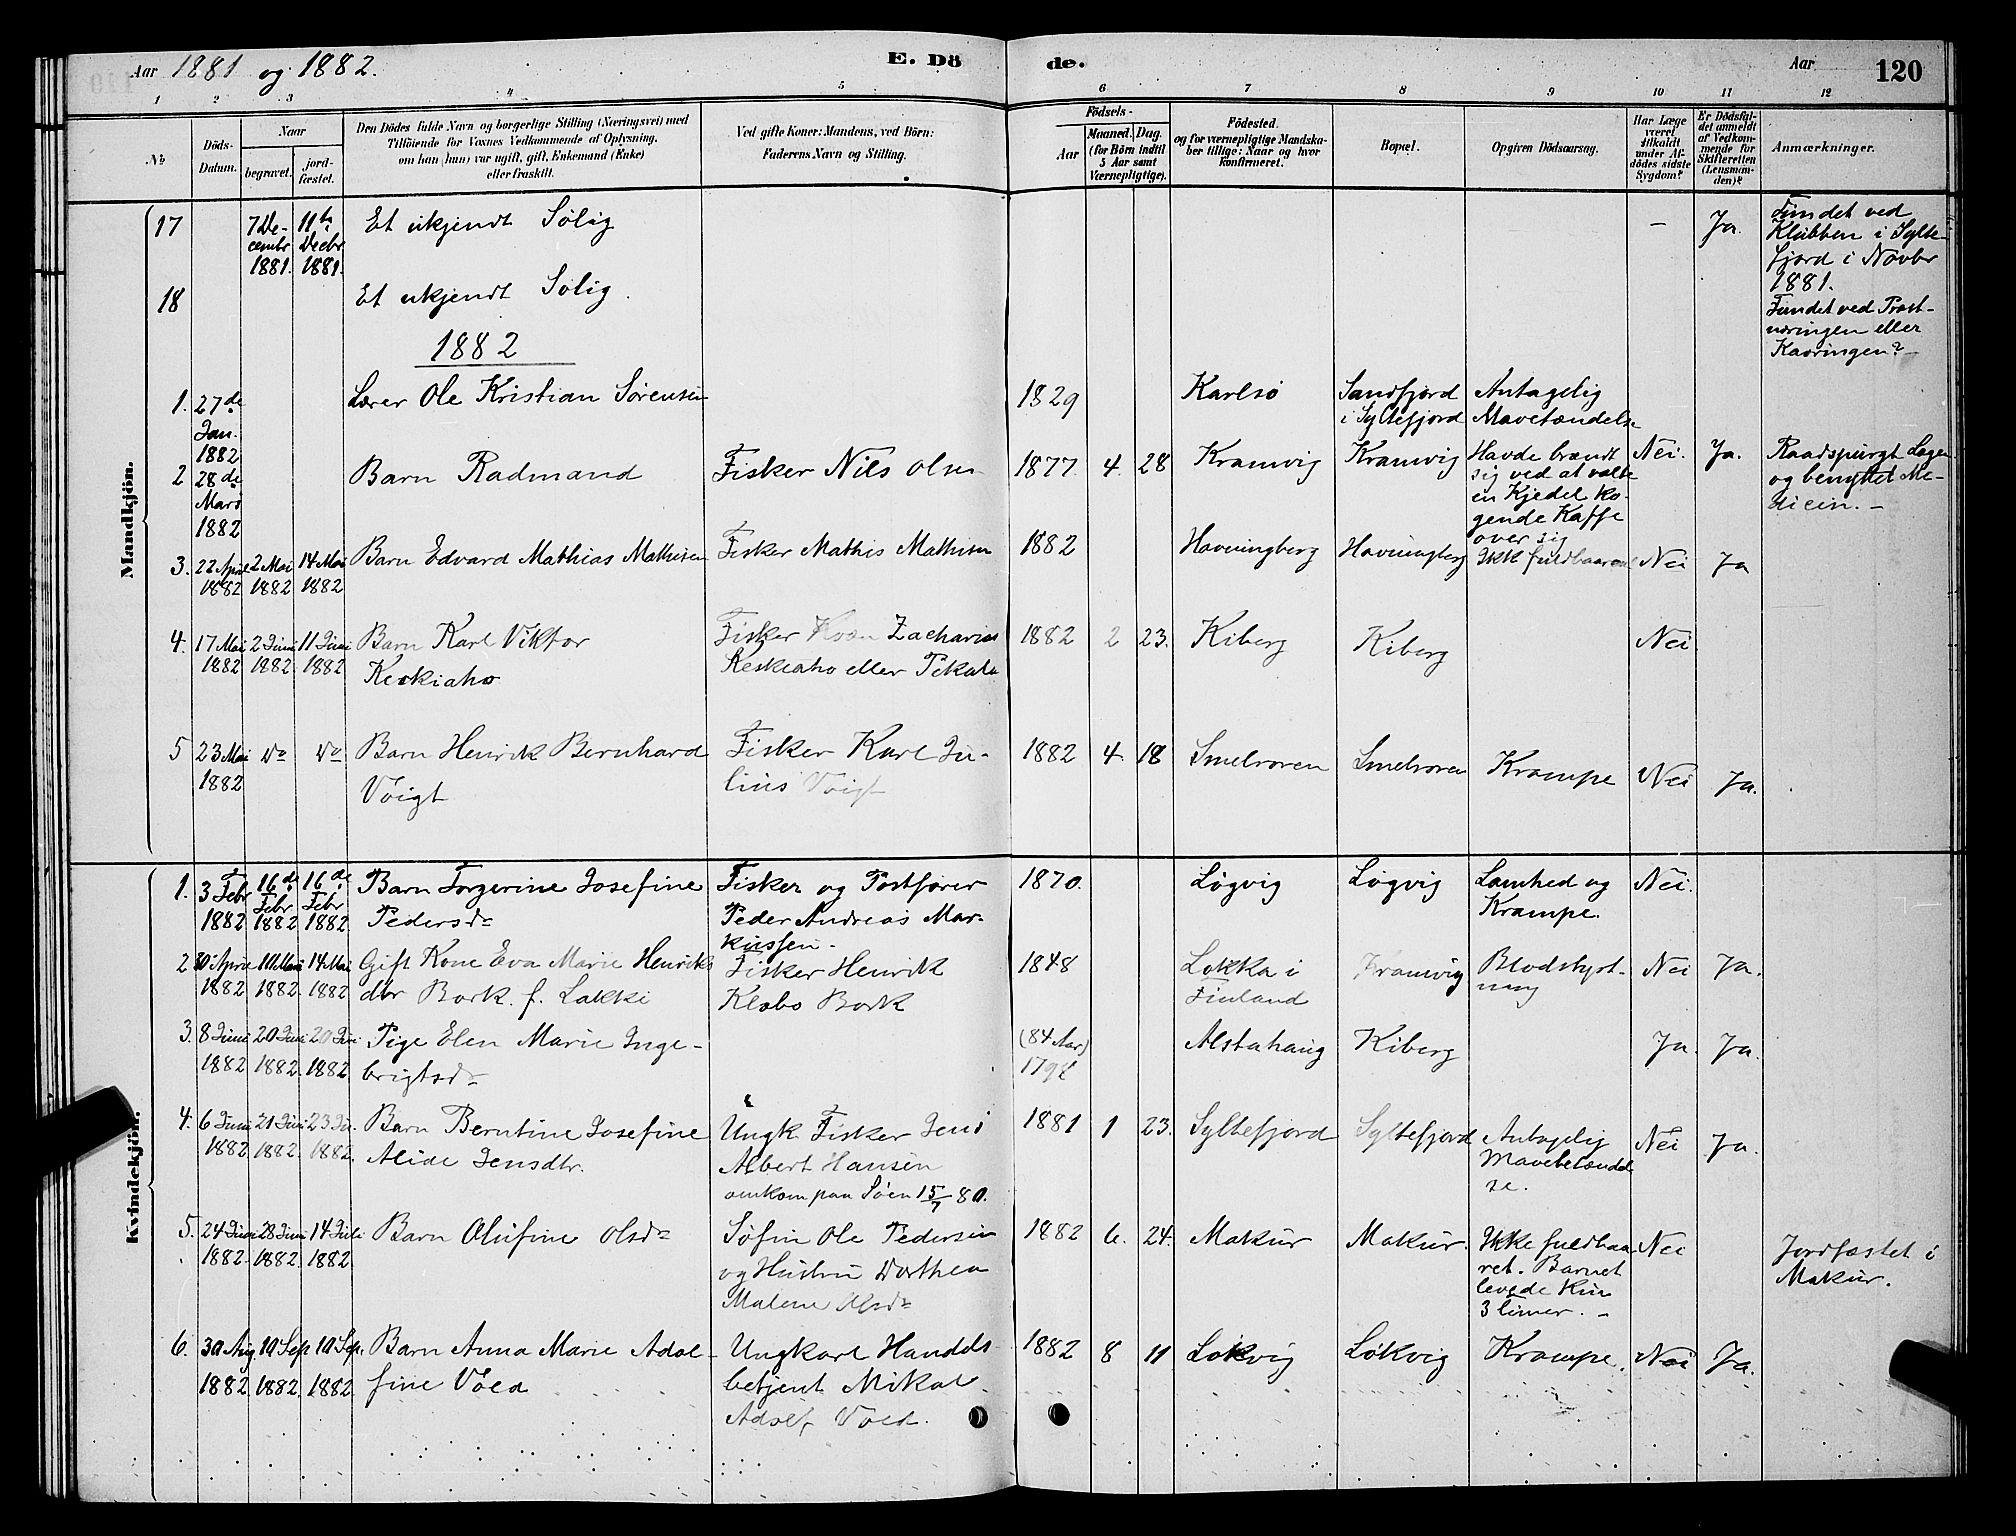 Aar 1881 og 1882.
E. Dö de.
Aar 120
1 2 3 4 5 6 7 8 9 10 11 12
No
Döds-Datum.
Naar
begravet.
jord-fæstet.
Den Dödes fulde Navn og borgerlige Stilling (Næringsvei) med
Tilföiende for Voxnes Vedkommende af Oplysning,
om han (hun) var ugift, gift, Enkemand (Enke)
eller fraskilt.
Ved gifte Koner: Mandens, ved Börn:
Faderens Navn og Stilling.
Födsels-
Aar
Maaned. Dag.
(for Börn indtil
5 Aar samt
Værnepligtige).
Födested.
og for værnepligtige Mandska-
ber tillige: Naar og hvor
konfirmeret.
Bopæl.
Opgiven Dödsaarsag.
Har Læge
været
tilkaldt
under Af-
dödes sidste
Sygdom?
Er Dödsfal-
det anmeldt
af Vedkom-
mende for
Skifteretten
(Lensman-
den)?
Anmærkninger.
Mandkjön.
17 7 De-
cembr
1881. 11te
Decbr
1881. Et ukjendt Sølig - Ja. Fundet ved
Klubben i Sylte-
fjord i Novbr
1881.
18 Et ukjendt Sølig. Fundet ved Præst-
næringen eller
Kavringen?-
1882
1. 27de
Jan.
1882 Lærer Ole Kristian Sørensen 1829 Karlsö Sandfjord
i Syltefjord Antagelig
Mavetændelse
2 28de
Mars
1882 Barn Radmand Fisker Nils Olsen 1877 4. 28 Kramvig Kramvig Havde brændt
sig ved at vælte
en Kjedel ko-
gende Kaffe
over sig Nei. Ja. Raadspurgt Læge
og benyttet Me-
dicin. -
3. 22 April
1882 2 Mai
1882 14 Mai
1882 Barn Edvard Mathias Mathisen Fisker Mathis Mathisen 1882 Havningberg Havningberg Ikke fuldbaaren Nei Ja
4. 17 Mai
1882 2 Juni
1882 11 Juni
1882 Barn Karl Viktor
Keskiaho Fisker Kvæn Zacharias
Keskiaho eller Pekala 1882 2 23. Kiberg Kiberg Nei
5 23 Mai
1882 Do Do Barn Henrik Bernhard
Voigt Fisker Karl Ju-
lius Voigt 1882 4. 18 Smelroren Smelroren Krampe Nei Ja.
Kvindekjön.
1. 3 Febr
1882 16de
Febr
1882 16de
Febr
1882 Barn Torgerine Josefine
Pedersdr Fisker og Postfører
Peder Andreas Mar-
kussen. 1870. Løgvig Løgvig Lamhed og
Krampe. Nei.
2 30 April
1882 10 Mai
1882. 14 Mai
1882 Gift Kone Eva Marie Henriks
dtr Bork. f. Lakki Fisker Henrik
Klabo Bork 1848 Lokka i
Finland Kramvig Blodstyrt-
ning Nei Ja.
3. 8 Juni
1882 20 Juni
1882. 20 Juni
1882 Pige Elen Marie Inge-
brigtsdr (84 Aar)
1798 Alstahaug Kiberg Ja. Ja.
4. 6 Juni
1882 21 Juni
1882. 23 Ju.
1882. Barn Berntine Josefine
Alide Jensdtr. Ungk. Fisker Jens
Albert Hansen
omkom paa Søen 15/7 80. 1881 1 23. Syltefjord Syltefjord Antagelig
Mavebetændel
se. Nei Ja.
5. 24 Juni
1882. 28 Juni
1882. 14 Juli
1882. Barn Olufine Olsdr Søfin Ole Pedersen
og Hustru Dorthea
Malene Olsdr 1882 6. 24. Makur Makur. Ikke fuldbaa
ret. Barnet
levede kun
3 timer. - Nei Jordfæstet i
Makur.
6. 30 Aug.
1882. 10 Sep
1882. 10 Sep.
1882 Barn Anna Marie Adol-
fine Vold Ungkarl Handels-
betjent Mikal
Adolf Vold. 1882 8 11 Løkvig Løkvig Krampe. Nei Ja.